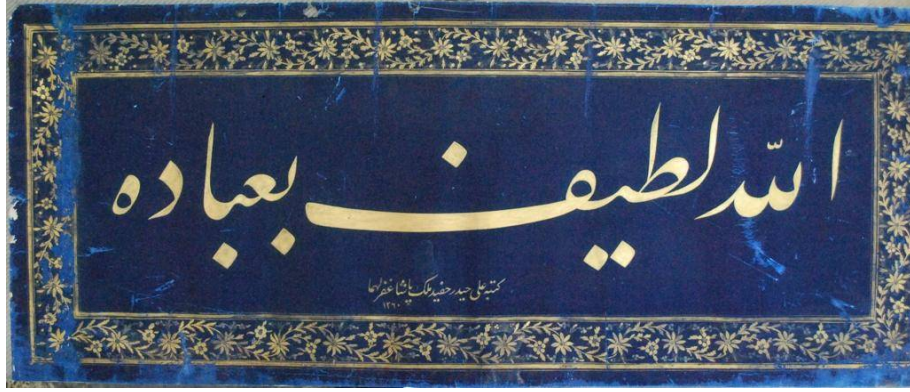 الله لطيف بعباده
كتبه علي حيدر حفيد ملك پاشا غفر لهما
١٢٦٠